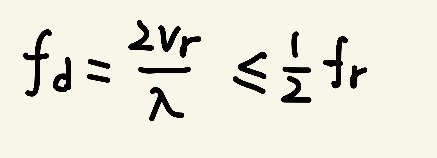 f_d = \frac{2v_r}{\lambda} \leq \frac{1}{2} f_r